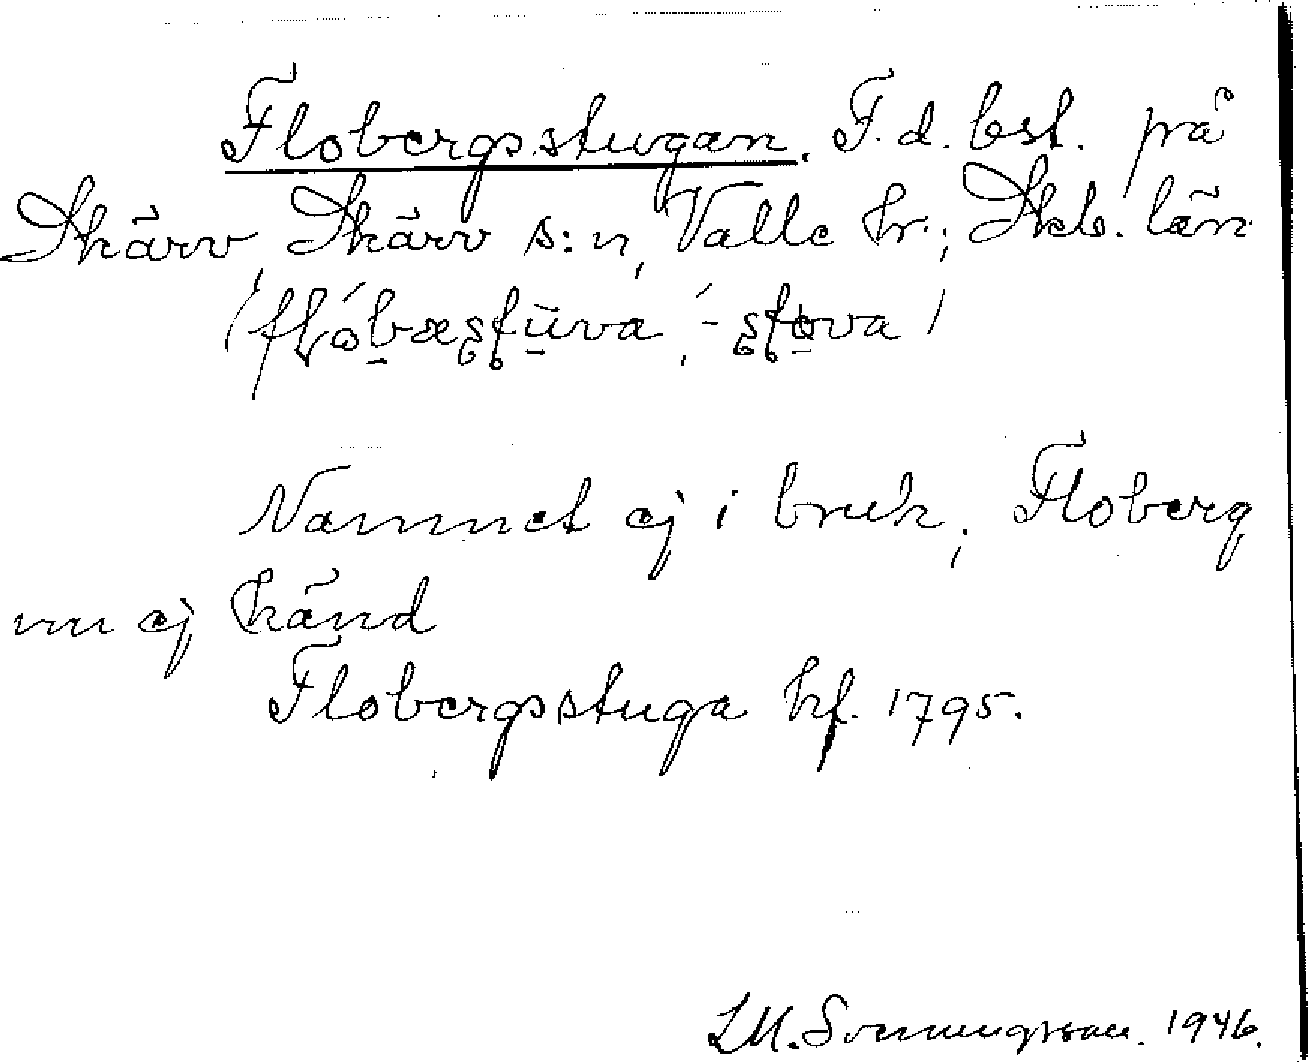 Flobergsstugan. F.d. bst. på
Skärv, Skärv s:n, Valle hr.; Skb. län
Namnet ej i bruk; Floberg
nu ej känd
Flobergsstuga hf. 1795.
1946.